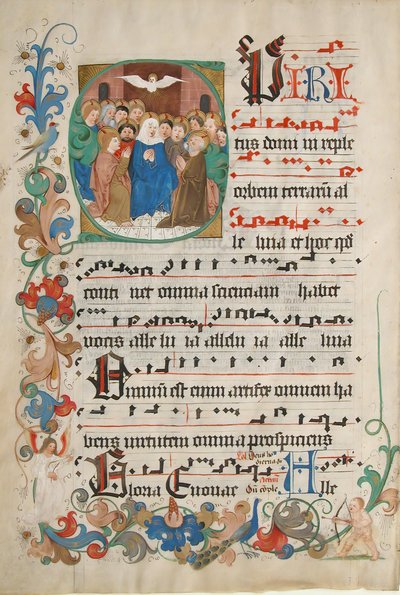 SPIRI
tus domi in reple
orbem terrarū al
le luia et hoc qd
conti net omnia scientiam habet
vocis alle lu ia allelu ia alle luia
Omniū est enim artifex omnem ha
bens virtutem omnia prospiciens
Gloria Euouae Alle
Deus ho
dierna